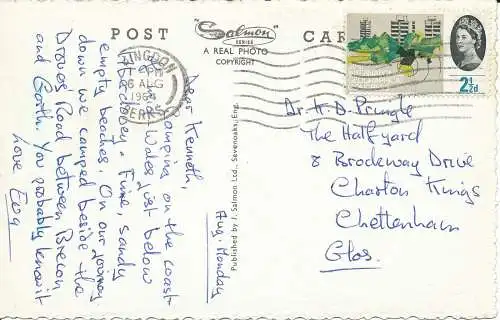 POST CARD
Salmon
SERIES
A REAL PHOTO
COPYRIGHT
INGDON
PM
6 AUG
196
BERKS
2½d
Aug. Monday
Dear Kenneth,
camping on the coast
Wales just below
Aberdovey. Fine, sandy
empty beaches. On our journey
down we camped beside the
Drovers Road between Brecon
and Garth. You probably know it
Love Eva
Published by J. Salmon Ltd., Sevenoaks, Eng.
Dr. K. D. Pringle
The Halfyard
8 Brookway Drive
Charlton Kings
Cheltenham
Glos.